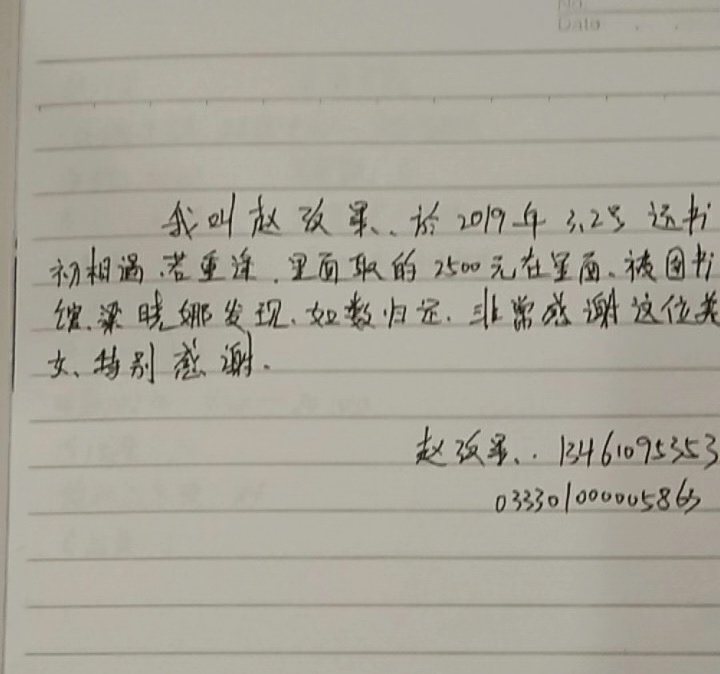 No
Date
我叫赵改军、.於2019年3.2号还书
初相遇.若重逢.里面取的2500元在里面、被图书
馆.梁晓娜发现.如数归还.非常感谢这位美
女、特别感谢.
赵改军、.13461095353
0333010000005863